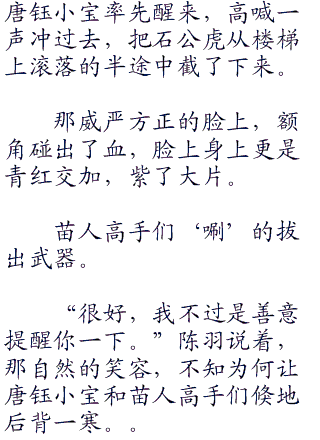 唐钰小宝率先醒来，高喊一
声冲过去，把石公虎从楼梯
上滚落的半途中截了下来。
那威严方正的脸上，额
角碰出了血，脸上身上更是
青红交加，紫了大片。
苗人高手们‘唰’的拔
出武器。
“很好，我不过是善意
提醒你一下。”陈羽说着，
那自然的笑容，不知为何让
唐钰小宝和苗人高手们倏地
后背一寒。。